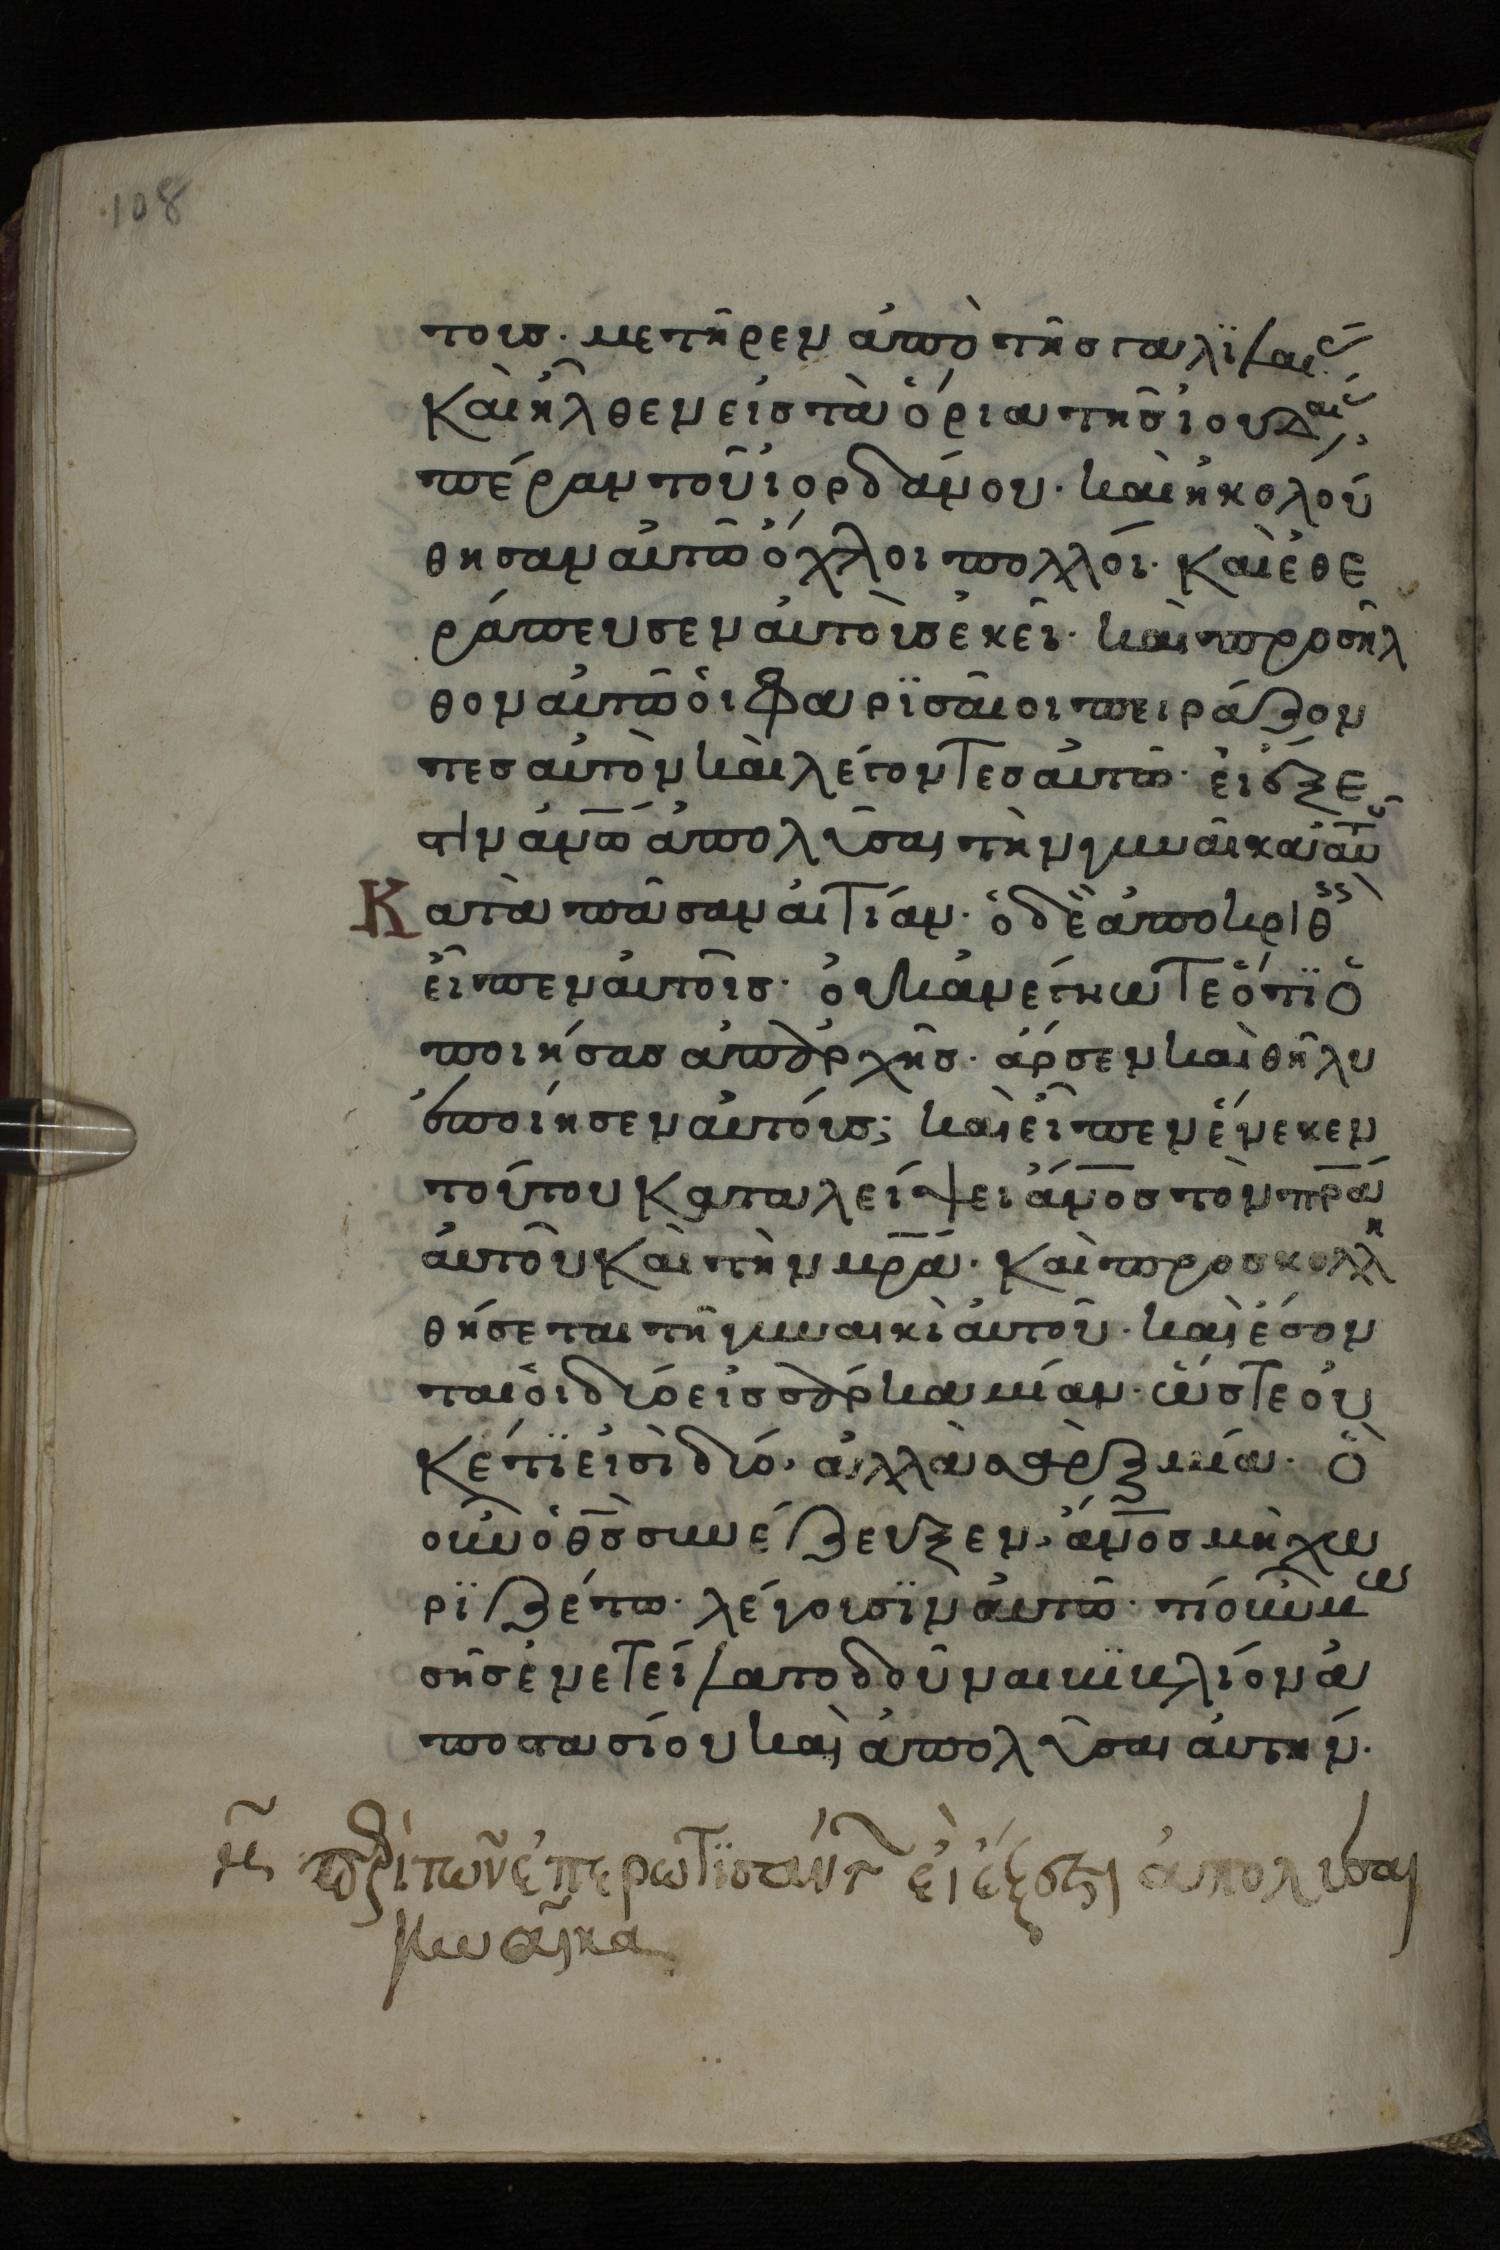 108
τους· μετῆρεν ἀπὸ τῆς γαλϊλαίας
καὶ ἦλθεν εἰς τὰ ὅρια τῆς ἰουδαίας
πέραν τοῦ ἰορδάνου· καὶ ἠκολού
θησαν αὐτῶ ὄχλοι πολλοί· καὶ ἐθε
ράπευσεν αὐτοὺς ἐκεῖ· καὶ προσῆλ
θον αὐτῶ οἱ φαρϊσαῖοι πειράζον
τες αὐτὸν καὶ λέγοντες αὐτῶ· εἰ ἔξε
στιν ἀν̅ω̅ ἀπολῦσαι τὴν γυναῖκα αὐτοῦ
Κατὰ πᾶσαν αἰτίαν· ὁ δὲ ἀποκριθεὶς
εἶπεν αὐτοῖς· οὐκ ἀνέγνωτε ὅτϊ ὁ
ποιήσας ἀπ' ἀρχῆς· ἄρσεν καὶ θῆλυ
ἐποίησεν αὐτούς; καὶ εἶπεν ἕνεκεν
τούτου καταλείψει ἄν̅ο̅ς τὸν π̅ρ̅α̅
αὐτοῦ καὶ τὴν μ̅ρ̅α̅· καὶ προσκολλη
θήσεται τῇ γυναικὶ αὐτοῦ· καὶ ἔσον
ται οἱ δύο εἰς σάρκα μίαν· ὥστε οὐ
κέτϊ εἰσὶ δύο· ἀλλὰ σὰρξ μία· ὃ
οὖν ὁ θ̅ς̅ συνέζευξεν, ἄν̅ο̅ς μὴ χω
ρϊζέτω· λέγουσϊν αὐτῶ· τί οὖν μω
σῆς ἐνετείλατο δοῦναι βϊβλίον ἀ
ποστασίου καὶ ἀπολῦσαι αὐτήν·
περὶ τῶν ἐπερωτϊσάντ εἰ ἔξεστι ἀπολυσαι
γυναῖκα